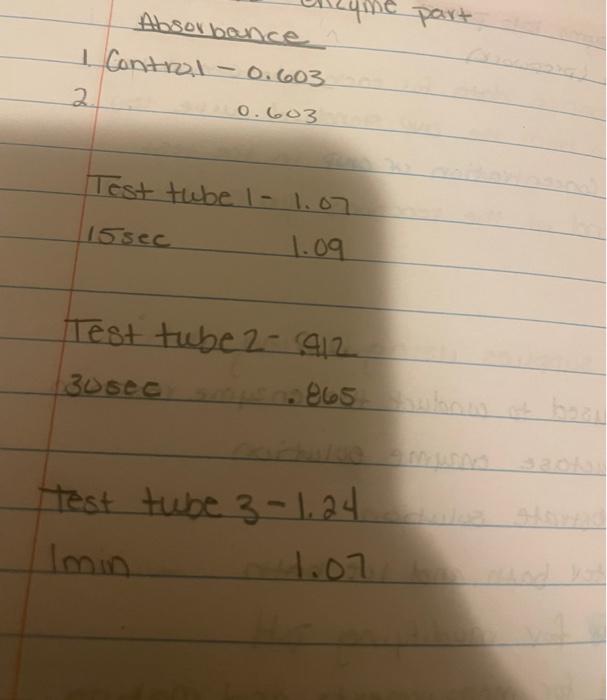 enzyme part
Absorbance
1. Control - 0.603
2. 0.603
Test tube 1 - 1.07
15sec 1.09
Test tube 2 - .912
30sec .865
test tube 3 - 1.24
1min 1.07